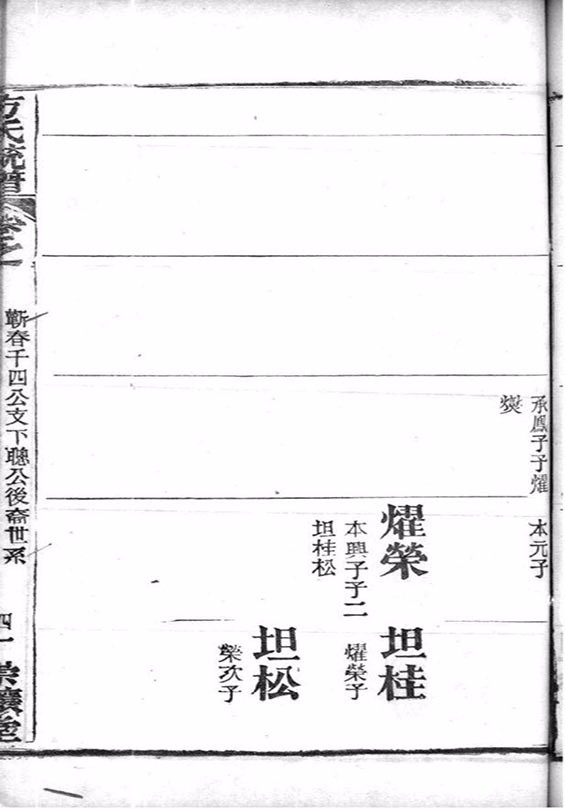 承鳳子子燿
燮
本元子
燿榮
本興子子二
坦桂松
坦桂
燿榮子
坦松
榮次子
方氏統譜
卷之一
蘄春千四公支下聰公後裔世系
四一